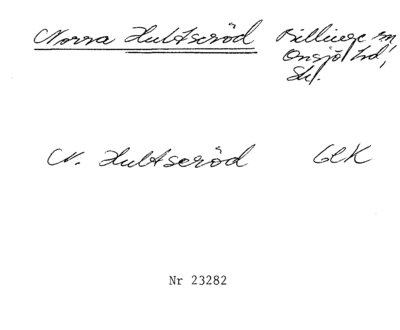 Norra Hultseröd Billinge sn,
Onsjö hd,
Sk.
N. Hultseröd GEK
Nr 23282